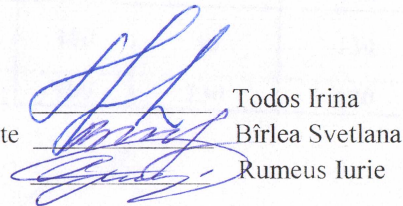 Todos Irina
te Bîrlea Svetlana
Rumeus Iurie